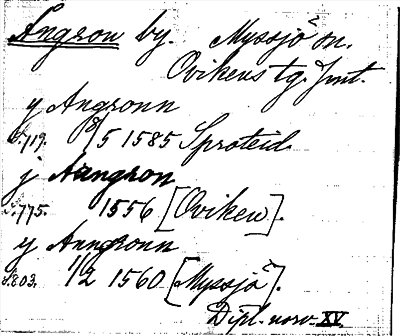 Angron by. Myssjö sn.
Ovikens tg. Jmt.
y Angronn
s. 719. 8/5 1585 Sproteed.
j Aangron
s. 775. 1556 [Oviken].
y Anngronn
s. 803. 1/2 1560 [Myssjö].
Dipl. norv. XV